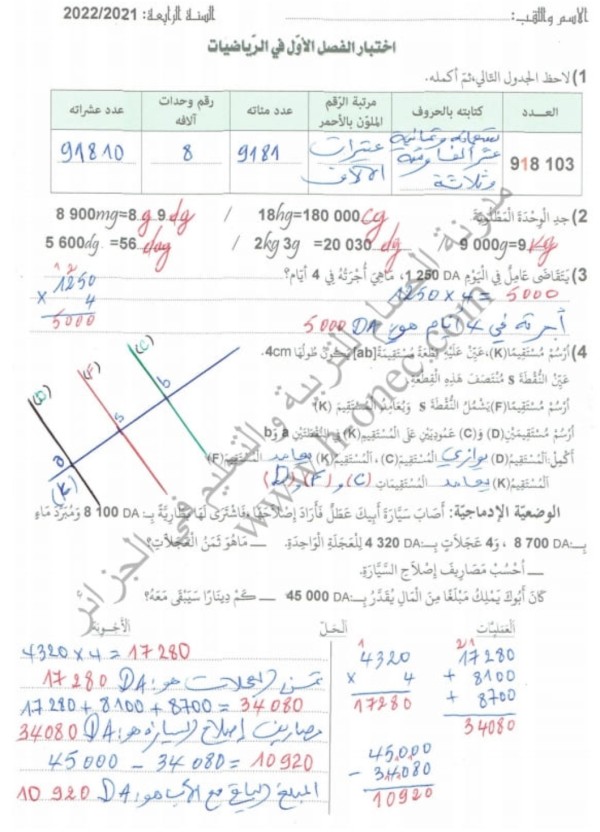 الاسم واللقب: السنة الرابعة: 2022/2021
اختبار الفصل الأول في الرياضيات
1) لاحظ الجدول التالي، ثم أكمله.
العـــدد كتابته بالحروف مرتبة الرقم الملون بالأحمر عدد مئاته رقم وحدات آلافه عدد عشراته
918 103 تسعمائة وثمانية عشر ألفا ومئة وثلاثة عشرات الآلاف 9181 8 91810
2) جد الوحدة المطلوبة
8 900mg=8 g 9 dg / 18hg=180 000 cg
5 600dg =56 dag / 2kg 3g =20 030 dg / 9 000g=9 kg
3) يتقاضى عامل في اليوم 1 250 DA، ماهي أجرته في 4 أيام؟
1250 × 4 = 5000
1250
× 4
5000
أجرته في 4 أيام هو: 5000 DA
4) أرسم مستقيما (K)، عين عليه قطعة مستقيمة [ab] يكون طولها 4cm.
عين النقطة s منتصف هذه القطعة
أرسم مستقيما (F) يشمل النقطة s ويعامد المستقيم (K)
أرسم مستقيمين (D) و (C) عموديين على المستقيم (K) في النقطتين a و b
أكمل: المستقيم (D) يوازي المستقيم (C)، المستقيم (K) يعامد المستقيم (F)
المستقيم (K) يعامد المستقيمات (C) و (F) و (D)
(D) (F) (C)
a s b
(K)
الوضعية الإدماجية: أصاب سيارة أبيك عطل فأراد إصلاحها فاشترى لها بطارية بـ: 8 100 DA ومبرد ماء
بـ: 8 700 DA، و4 عجلات بـ: 4 320 DA للعجلة الواحدة. ــ ماهو ثمن العجلات؟
ــ أحسب مصاريف إصلاح السيارة.
كان أبوك يملك مبلغا من المال يقدر بـ: 45 000 DA ــ كم دينارا سيبقى معه؟
العمليات الحل الأجوبة
4320 × 4 = 17280
ثمن العجلات هو: 17 280 DA
17280 + 8100 + 8700 = 34080
مصاريف إصلاح السيارة هو: 34080 DA
45 000 − 34 080 = 10920
المبلغ الباقي مع الأب هو: 10 920 DA
4320
× 4
17280
17280
+ 8100
+ 8700
34080
45000
− 34080
10920
مدونة الحصاد للتربية و التعليم في الجزائر